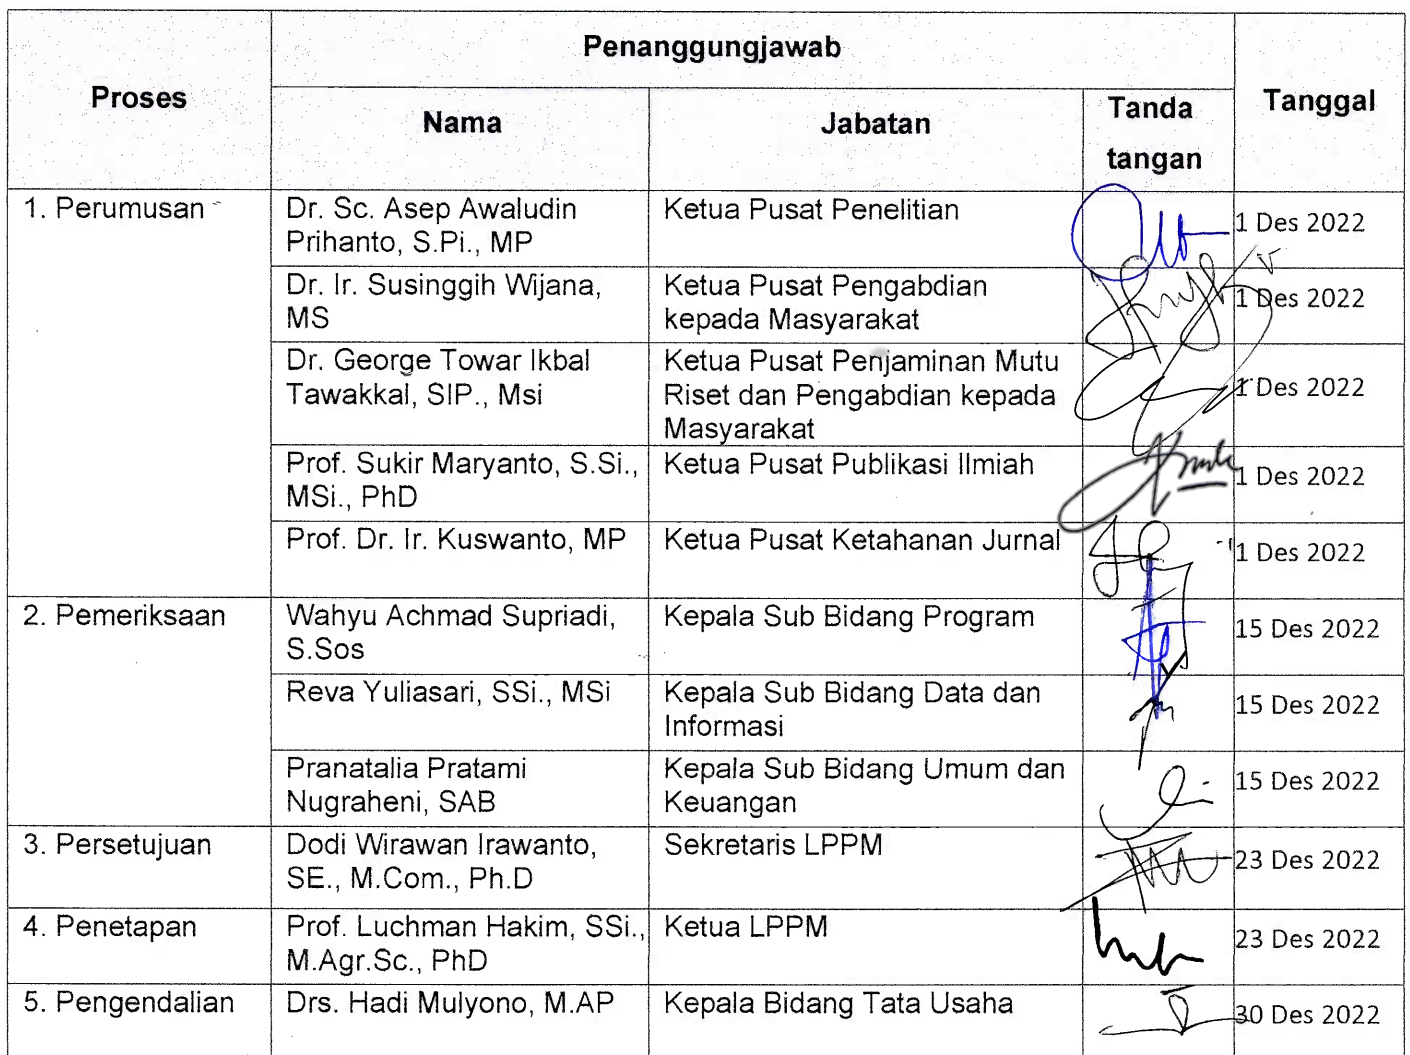 Proses
Penanggungjawab
Tanggal
Nama
Jabatan
Tanda
tangan
1. Perumusan
Dr. Sc. Asep Awaludin
Prihanto, S.Pi., MP
Ketua Pusat Penelitian
1 Des 2022
Dr. Ir. Susinggih Wijana,
MS
Ketua Pusat Pengabdian
kepada Masyarakat
1 Des 2022
Dr. George Towar Ikbal
Tawakkal, SIP., Msi
Ketua Pusat Penjaminan Mutu
Riset dan Pengabdian kepada
Masyarakat
1 Des 2022
Prof. Sukir Maryanto, S.Si.,
MSi., PhD
Ketua Pusat Publikasi Ilmiah
1 Des 2022
Prof. Dr. Ir. Kuswanto, MP
Ketua Pusat Ketahanan Jurnal
1 Des 2022
2. Pemeriksaan
Wahyu Achmad Supriadi,
S.Sos
Kepala Sub Bidang Program
15 Des 2022
Reva Yuliasari, SSi., MSi
Kepala Sub Bidang Data dan
Informasi
15 Des 2022
Pranatalia Pratami
Nugraheni, SAB
Kepala Sub Bidang Umum dan
Keuangan
15 Des 2022
3. Persetujuan
Dodi Wirawan Irawanto,
SE., M.Com., Ph.D
Sekretaris LPPM
23 Des 2022
4. Penetapan
Prof. Luchman Hakim, SSi.,
M.Agr.Sc., PhD
Ketua LPPM
23 Des 2022
5. Pengendalian
Drs. Hadi Mulyono, M.AP
Kepala Bidang Tata Usaha
30 Des 2022